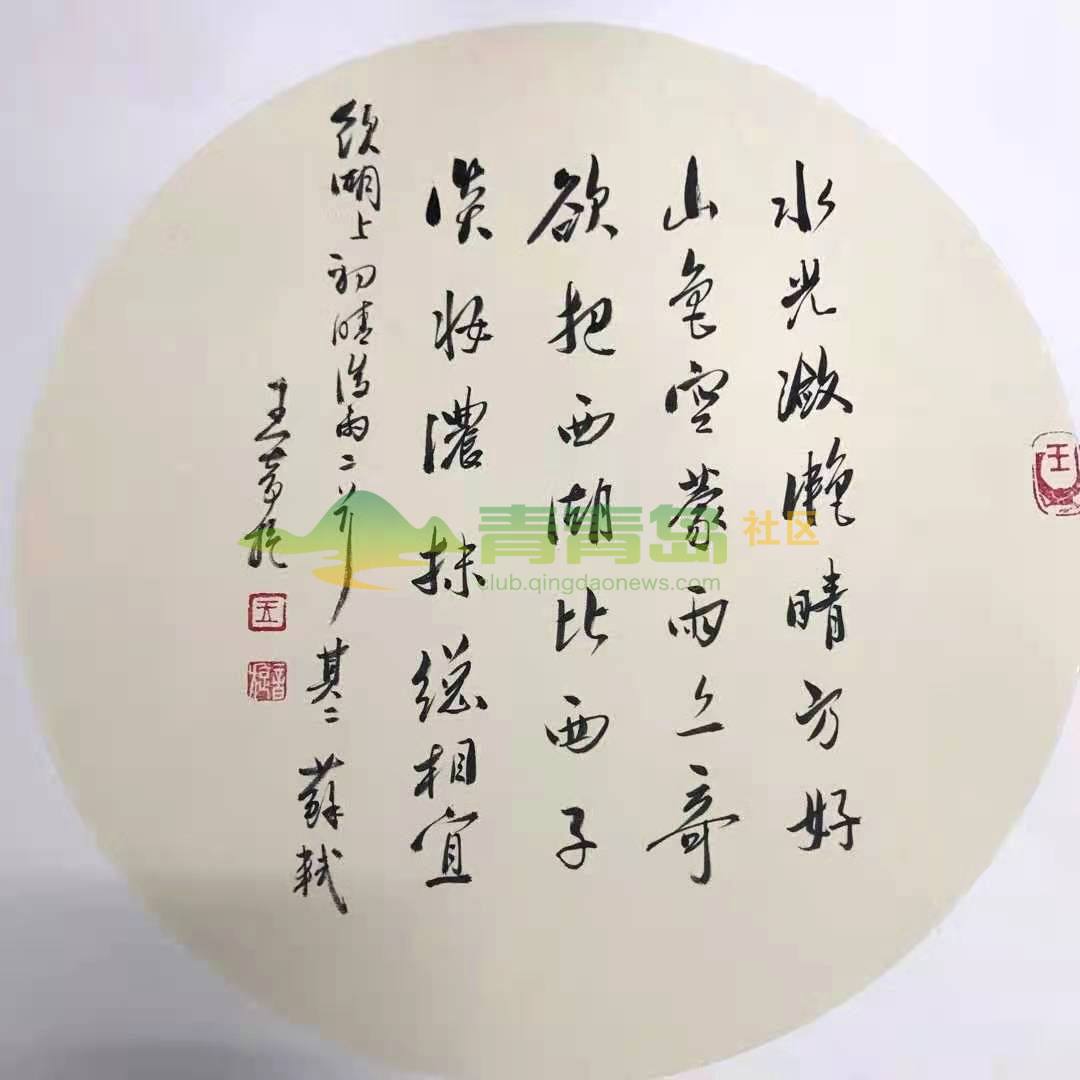 水光潋滟晴方好
山色空蒙雨亦奇
欲把西湖比西子
淡妆濃抹總相宜
飲湖上初晴後雨二首其二蘇軾
王
王
王
青青岛社区
club.qingdaonews.com